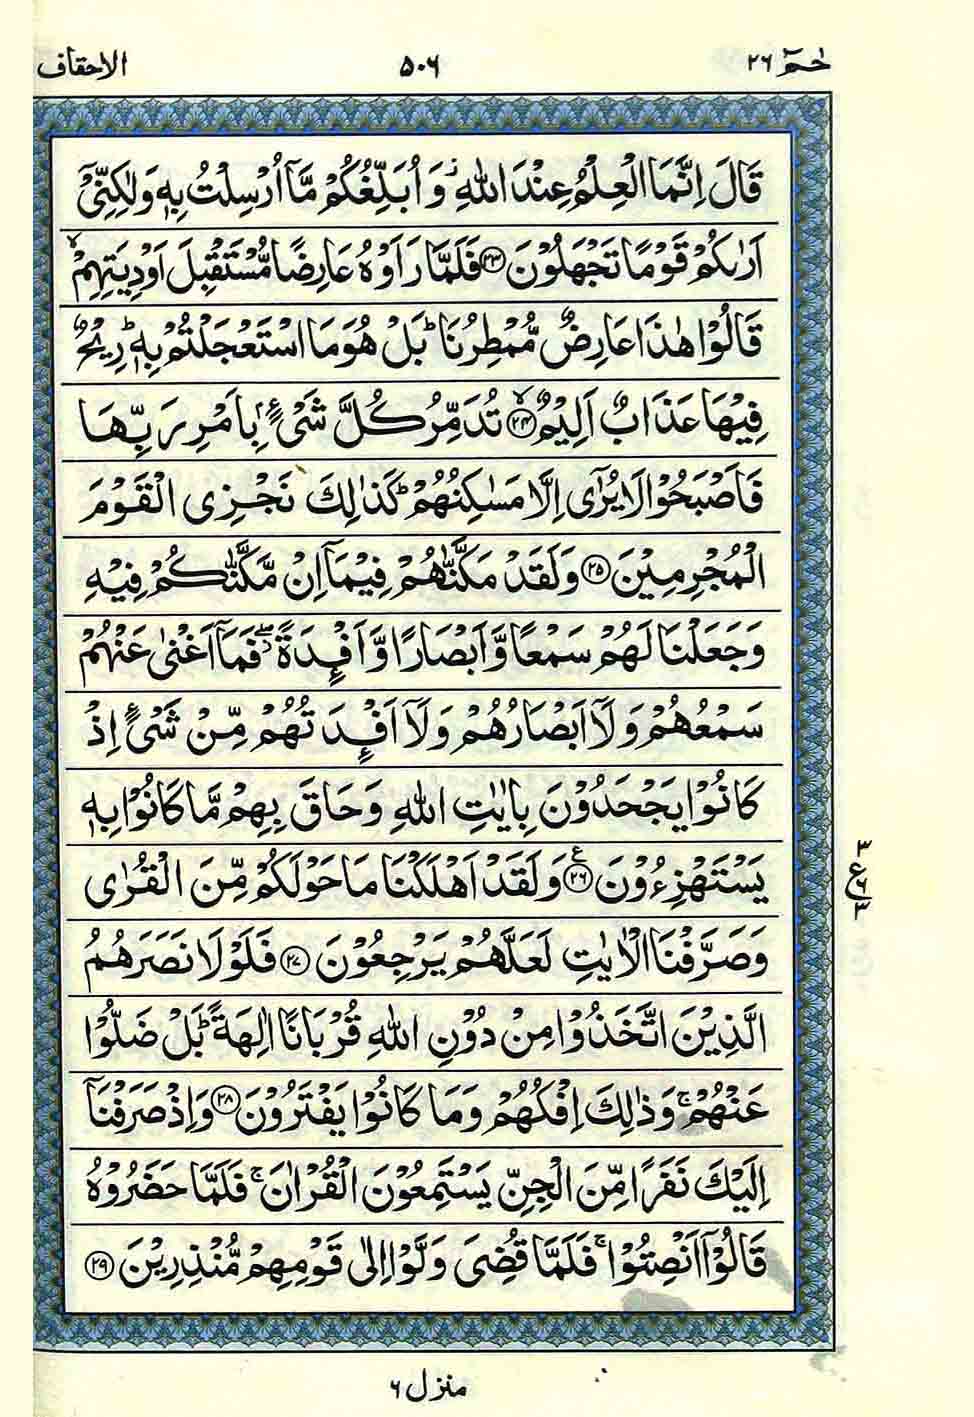 حٰمٓ ۲۶ ۵۰۶ الاحقاف
قَالَ اِنَّمَا الْعِلْمُ عِنْدَ اللّٰهِ ۖ وَ اُبَلِّغُكُمْ مَّاۤ اُرْسِلْتُ بِهٖ وَلٰكِنِّیْۤ
اَرٰىكُمْ قَوْمًا تَجْهَلُوْنَ ﴿۲۳﴾ فَلَمَّا رَاَوْهُ عَارِضًا مُّسْتَقْبِلَ اَوْدِیَتِهِمْ ۙ
قَالُوْا هٰذَا عَارِضٌ مُّمْطِرُنَا ؕ بَلْ هُوَ مَا اسْتَعْجَلْتُمْ بِهٖ ؕ رِیْحٌ
فِیْهَا عَذَابٌ اَلِیْمٌ ﴿۲۴﴾ ۙ تُدَمِّرُ كُلَّ شَیْءٍۭ بِاَمْرِ رَبِّهَا
فَاَصْبَحُوْا لَا یُرٰۤی اِلَّا مَسٰكِنُهُمْ ؕ كَذٰلِكَ نَجْزِی الْقَوْمَ
الْمُجْرِمِیْنَ ﴿۲۵﴾ وَلَقَدْ مَكَّنّٰهُمْ فِیْمَاۤ اِنْ مَّكَّنّٰكُمْ فِیْهِ
وَجَعَلْنَا لَهُمْ سَمْعًا وَّاَبْصَارًا وَّاَفْـِٕدَةً ۖ فَمَاۤ اَغْنٰی عَنْهُمْ
سَمْعُهُمْ وَلَاۤ اَبْصَارُهُمْ وَلَاۤ اَفْـِٕدَتُهُمْ مِّنْ شَیْءٍ اِذْ
كَانُوْا یَجْحَدُوْنَ بِاٰیٰتِ اللّٰهِ وَحَاقَ بِهِمْ مَّا كَانُوْا بِهٖ
یَسْتَهْزِءُوْنَ ﴿۲۶﴾ ع وَلَقَدْ اَهْلَكْنَا مَا حَوْلَكُمْ مِّنَ الْقُرٰی
۳ ع ۶ ۳
وَصَرَّفْنَا الْاٰیٰتِ لَعَلَّهُمْ یَرْجِعُوْنَ ﴿۲۷﴾ فَلَوْلَا نَصَرَهُمُ
الَّذِیْنَ اتَّخَذُوْا مِنْ دُوْنِ اللّٰهِ قُرْبَانًا اٰلِهَةً ؕ بَلْ ضَلُّوْا
عَنْهُمْ ۚ وَذٰلِكَ اِفْكُهُمْ وَمَا كَانُوْا یَفْتَرُوْنَ ﴿۲۸﴾ وَاِذْ صَرَفْنَاۤ
اِلَیْكَ نَفَرًا مِّنَ الْجِنِّ یَسْتَمِعُوْنَ الْقُرْاٰنَ ۚ فَلَمَّا حَضَرُوْهُ
قَالُوْۤا اَنْصِتُوْا ۚ فَلَمَّا قُضِیَ وَلَّوْا اِلٰی قَوْمِهِمْ مُّنْذِرِیْنَ ﴿۲۹﴾
منزل ۶